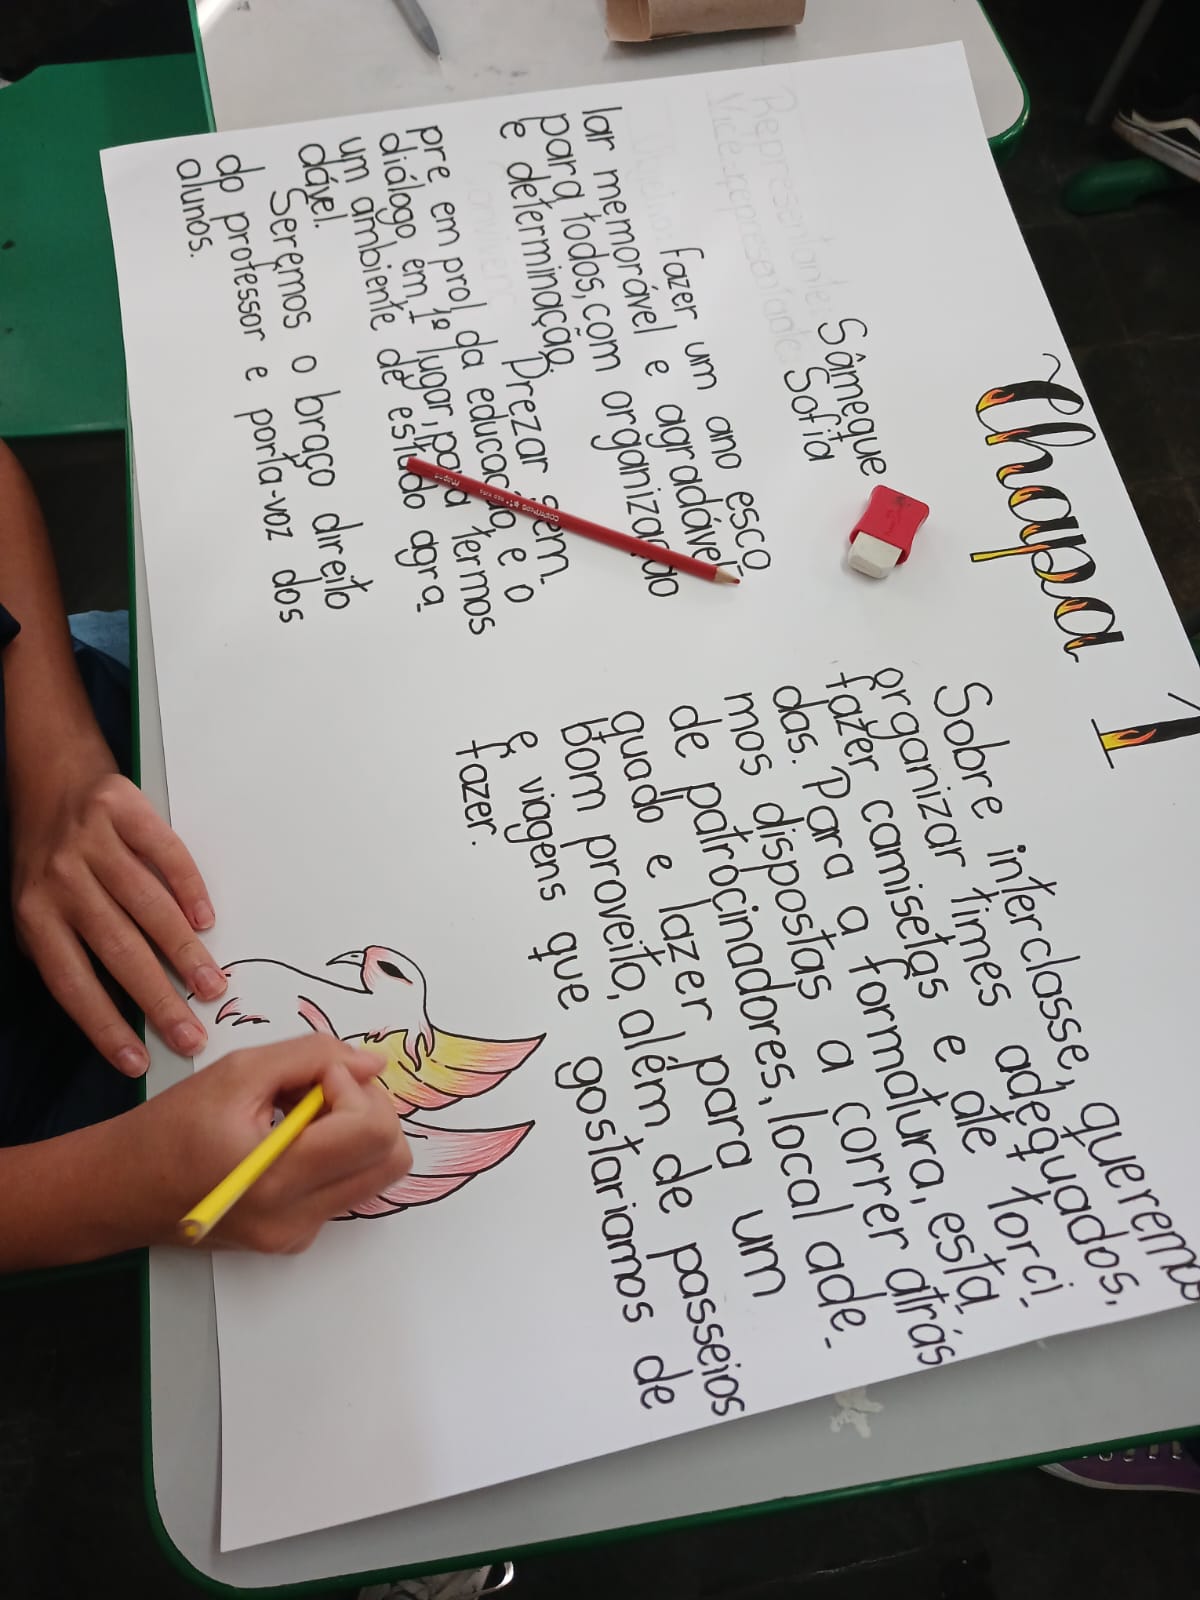 Chapa 1
Representante:
Vice-representante:
Sâmeque
Sofia
fazer um ano esco
lar memorável e agradável
para todos, com organização
e determinação.
Prezar sem-
pre em prol da educação e o
diálogo em 1º lugar, para termos
um ambiente de estudo agra-
dável.
Seremos o braço direito
do professor e porta-voz dos
alunos.
Sobre interclasse, queremo
organizar times adequados,
fazer camisetas e até torci-
das. Para a formatura, esta
mos dispostas a correr atrás
de patrocinadores, local ade-
quado e lazer para um
bom proveito, além de passeios
e viagens que gostariamos de
fazer.